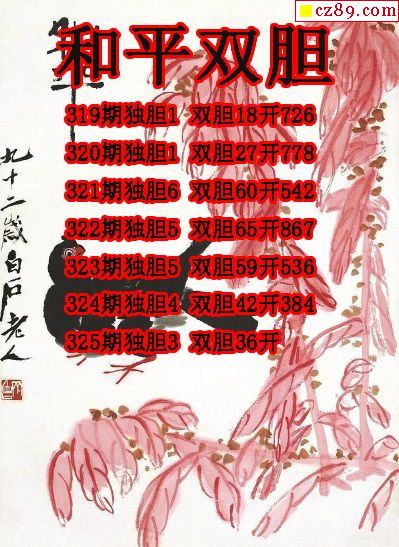 cz89.com
和平双胆
319期独胆1 双胆18开726
320期独胆1 双胆27开778
321期独胆6 双胆60开542
322期独胆5 双胆65开867
323期独胆5 双胆59开536
324期独胆4 双胆42开384
325期独胆3 双胆36开
九十二岁白石老人